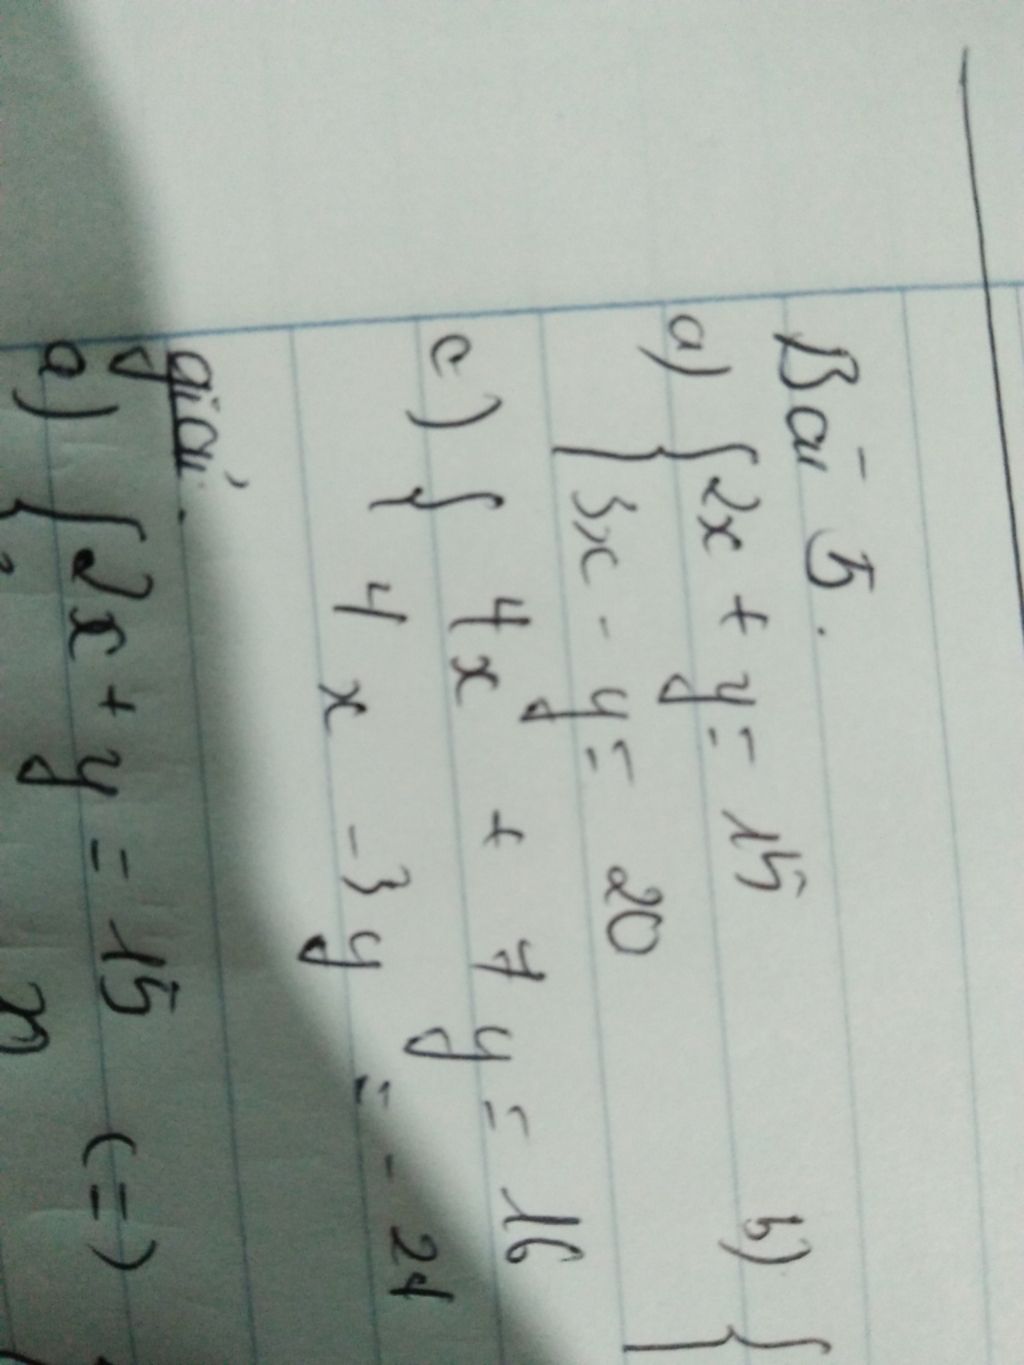 Bài 5.
a) { 2x + y = 15 b) {
3x - y = 20
c) { 4x + 7y = 16
4x - 3y = - 24
giải.
a) { 2x + y = 15 (=)